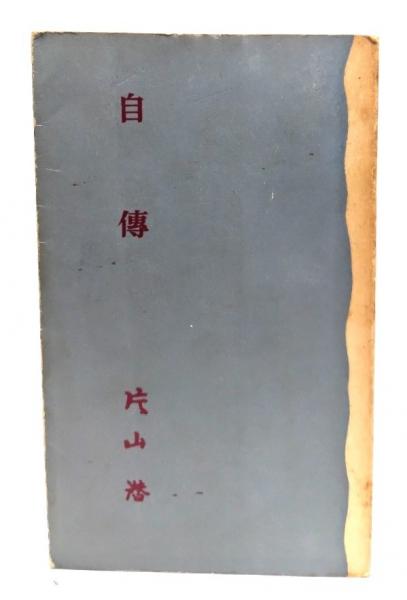 自傳
片山潜